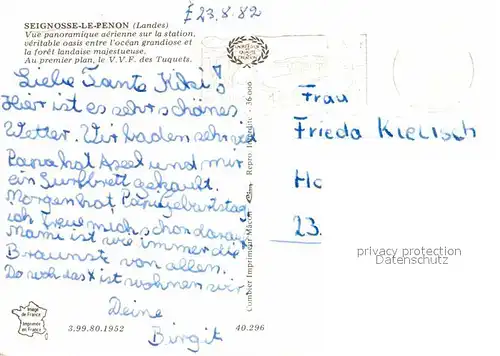 E 23.8.82
SEIGNOSSE-LE-PENON (Landes)
Vue panoramique aérienne sur la station,
véritable oasis entre l'océan grandiose et
la forêt landaise majestueuse.
Au premier plan, le V.V.F. des Tuquets.
Liebe Tante Kiki!
Hier ist es sehr schönes
Wetter. Wir baden sehr viel
Papa hat Axel und mir
ein Surfbrett gekauft.
Morgen hat Papi Geburtstag
ich freue mich schon darauf
Mami ist wie immer die
Braunste von allen.
Do woh das X ist wohnen wir
Deine
Birgit
Frau
Frieda Kielisch
Ho
23.
privacy protection
Datenschutz
Combier Imprimeur Mâcon
Image
de France
Imprimée
en France
3.99.80.1952
40.296